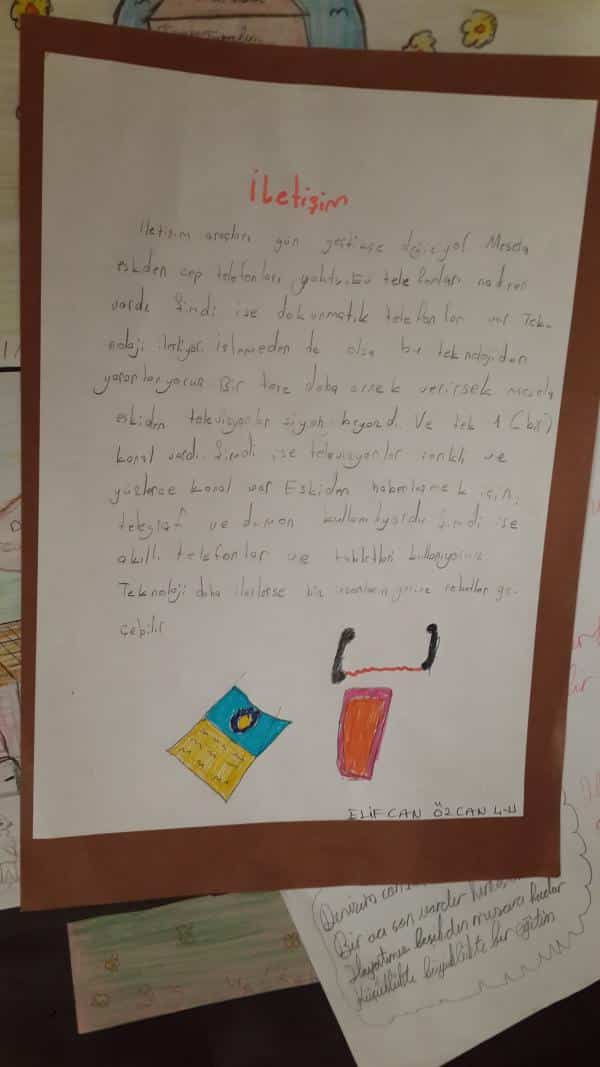 İletişim
İletişim araçları gün geçtikçe değişiyor Mesela
eskiden cep telefonları, telefonları nadiren
vardı Şimdi ise dokunmatik telefonlar var Tek-
noloji ilerliyor. istemeden de olsa bu teknolojiden
yararlanıyoruz Bir tane daha örnek verirsek mesela
eskiden televizyonlar siyah beyazdı. Ve tek 1 (bir)
kanal vardı. Şimdi ise televizyonlar renkli ve
yüzlerce kanal var Eskiden haberleşmek için,
telegraf ve duman kullanılıyordu Şimdi ise
akıllı telefonlar ve tabletleri kullanıyoruz.
Teknoloji daha ilerlerse biz insanların yerine robotlar ge-
çebilir
ELİFCAN ÖZCAN 4-H
Bir acı son vardır
Hayatımız beşikten mezara kadar
Küçüklükte büyüklükte bir eğitim